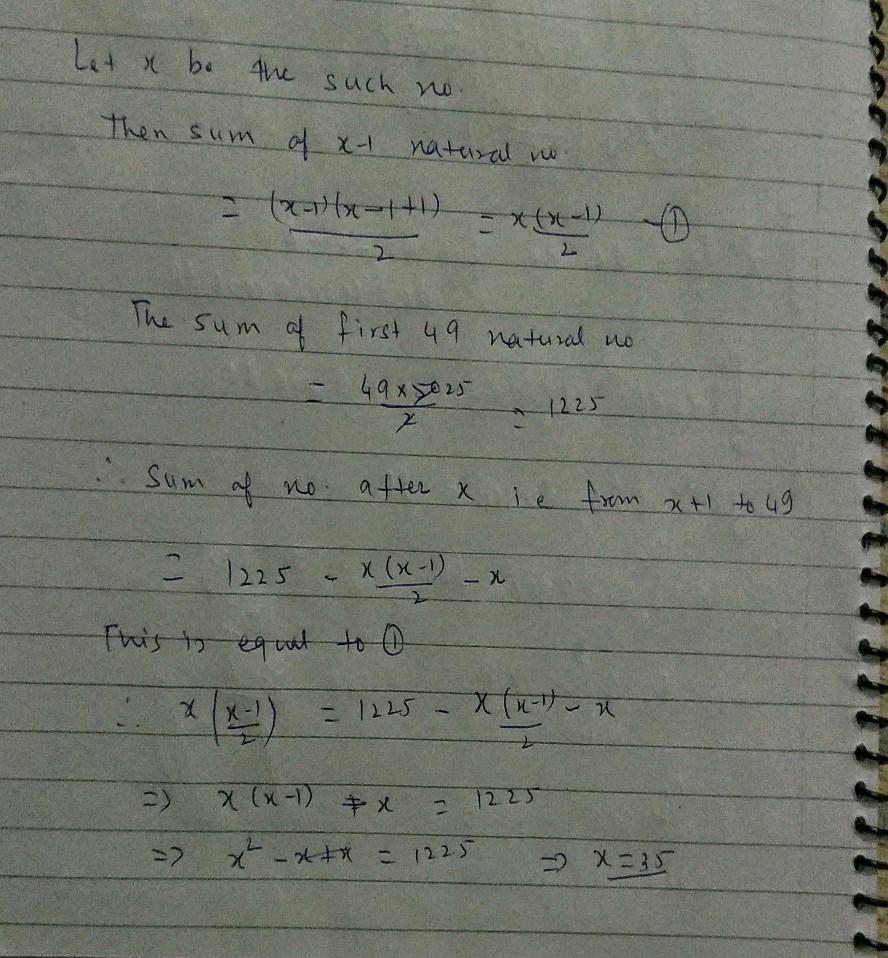 Let x be the such no.
Then sum of x-1 natural no.
= (x-1)(x-1+1)/2 = x(x-1)/2 - ①
The sum of first 49 natural no
= 49 x 50 25/2 = 1225
∴ Sum of no. after x i.e from x+1 to 49
= 1225 - x(x-1)/2 - x
This is equal to ①
∴ x(x-1/2) = 1225 - x(x-1)/2 - x
=> x(x-1) + x = 1225
=> x² - x + x = 1225 => x = 35